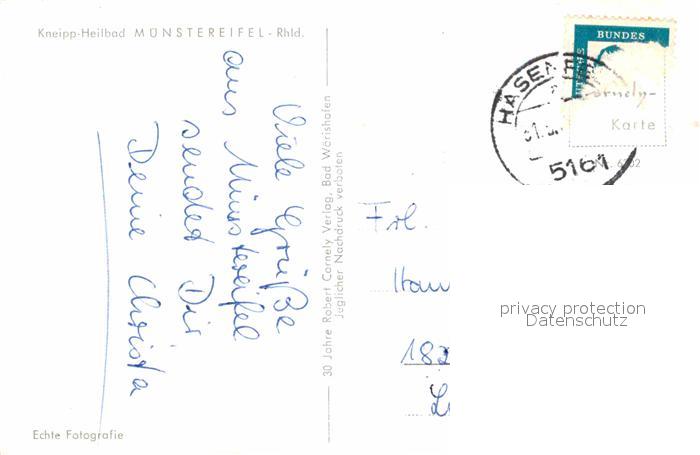 Kneipp-Heilbad MÜNSTEREIFEL - Rhld.
Viele Grüße
aus Münstereifel
sendet Dir
Deine Christa
Echte Fotografie
30 Jahre Robert Cornely Verlag, Bad Wörishofen
Jeglicher Nachdruck verboten
BUNDES
5161
Cornely-
Karte
Frl.
privacy protection
Datenschutz